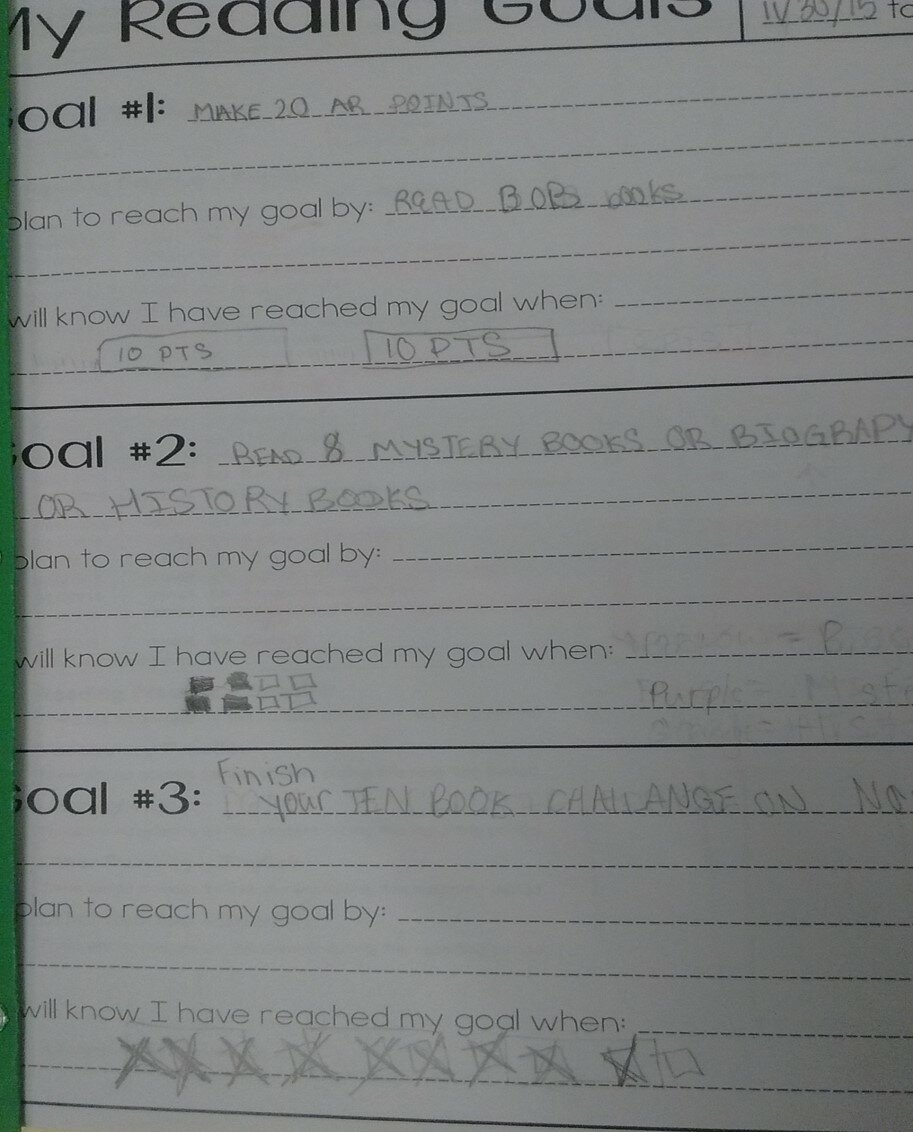 My Reading Goals 11/30/15 to
oal #1: MAKE 20 AR POINTS
plan to reach my goal by: REAd BOB books
will know I have reached my goal when:
10 PTS 10 PTS
oal #2: READ 8 MYSTERY BOOKS OR BIOGRAPY
OR HISTORY BOOKS
plan to reach my goal by:
will know I have reached my goal when: = B
Purple =
Finish
Goal #3: your TEN BOOK CHALLANGE ON NO
plan to reach my goal by:
will know I have reached my goal when: